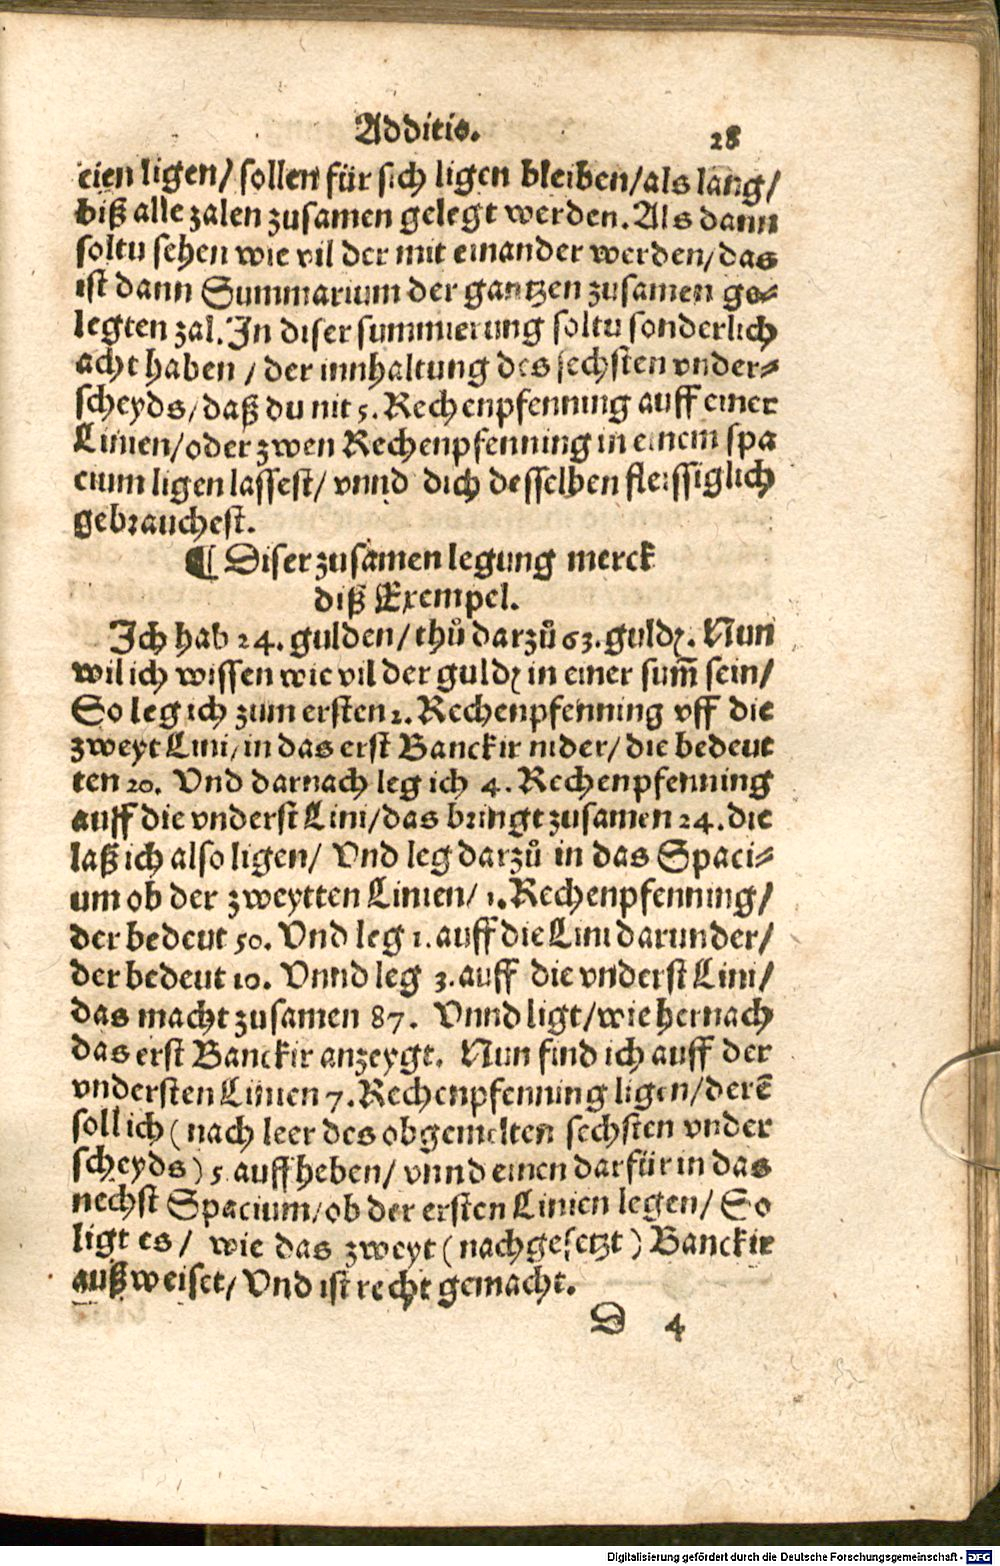 Additio. 28
cien ligen/ sollen für sich ligen bleiben/als lang/
biß alle zalen zusamen gelegt werden. Als dann
soltu sehen wie vil der mit einander werden/das
ist dann Summarium der gantzen zusamen ge-
legten zal. In diser summierung soltu sonderlich
acht haben / der innhaltung des sechsten vnder-
scheyds/daß du nit 5. Rechenpfenning auff einer
Linien/oder zwen Rechenpfenning in einem spa
cium ligen lassest/ vnnd dich desselben fleissiglich
gebrauchest.
¶ Diser zusamen legung merck
diß Exempel.
Ich hab 24. gulden/thů darzů 63. guldꝫ. Nun
wil ich wissen wie vil der guldꝫ in einer sum̃ sein/
So leg ich zum ersten 2. Rechenpfenning vff die
zweyt Lini/in das erst Banckir nider/die bedeut
ten 20. Vnd darnach leg ich 4. Rechenpfenning
auff die vnderst Lini/das bringt zusamen 24. die
laß ich also ligen/ Vnd leg darzů in das Spaci-
um ob der zweytten Linien/ 1. Rechenpfenning/
der bedeut 50. Vnd leg 1. auff die Lini darunder/
der bedeut 10. Vnnd leg 3. auff die vnderst Lini/
das macht zusamen 87. Vnnd ligt/wie hernach
das erst Banckir anzeygt. Nun find ich auff der
vndersten Linien 7. Rechenpfenning ligen/derē
soll ich (nach leer des obgemelten sechsten vnder
scheyds) 5 auffheben/ vnnd einen darfür in das
nechst Spacium/ob der ersten Linien legen/ So
ligt es/ wie das zweyt (nachgesetzt) Banckir
außweiset/ Vnd ist recht gemacht.
D 4
Digitalisierung gefördert durch die Deutsche Forschungsgemeinschaft - DFG